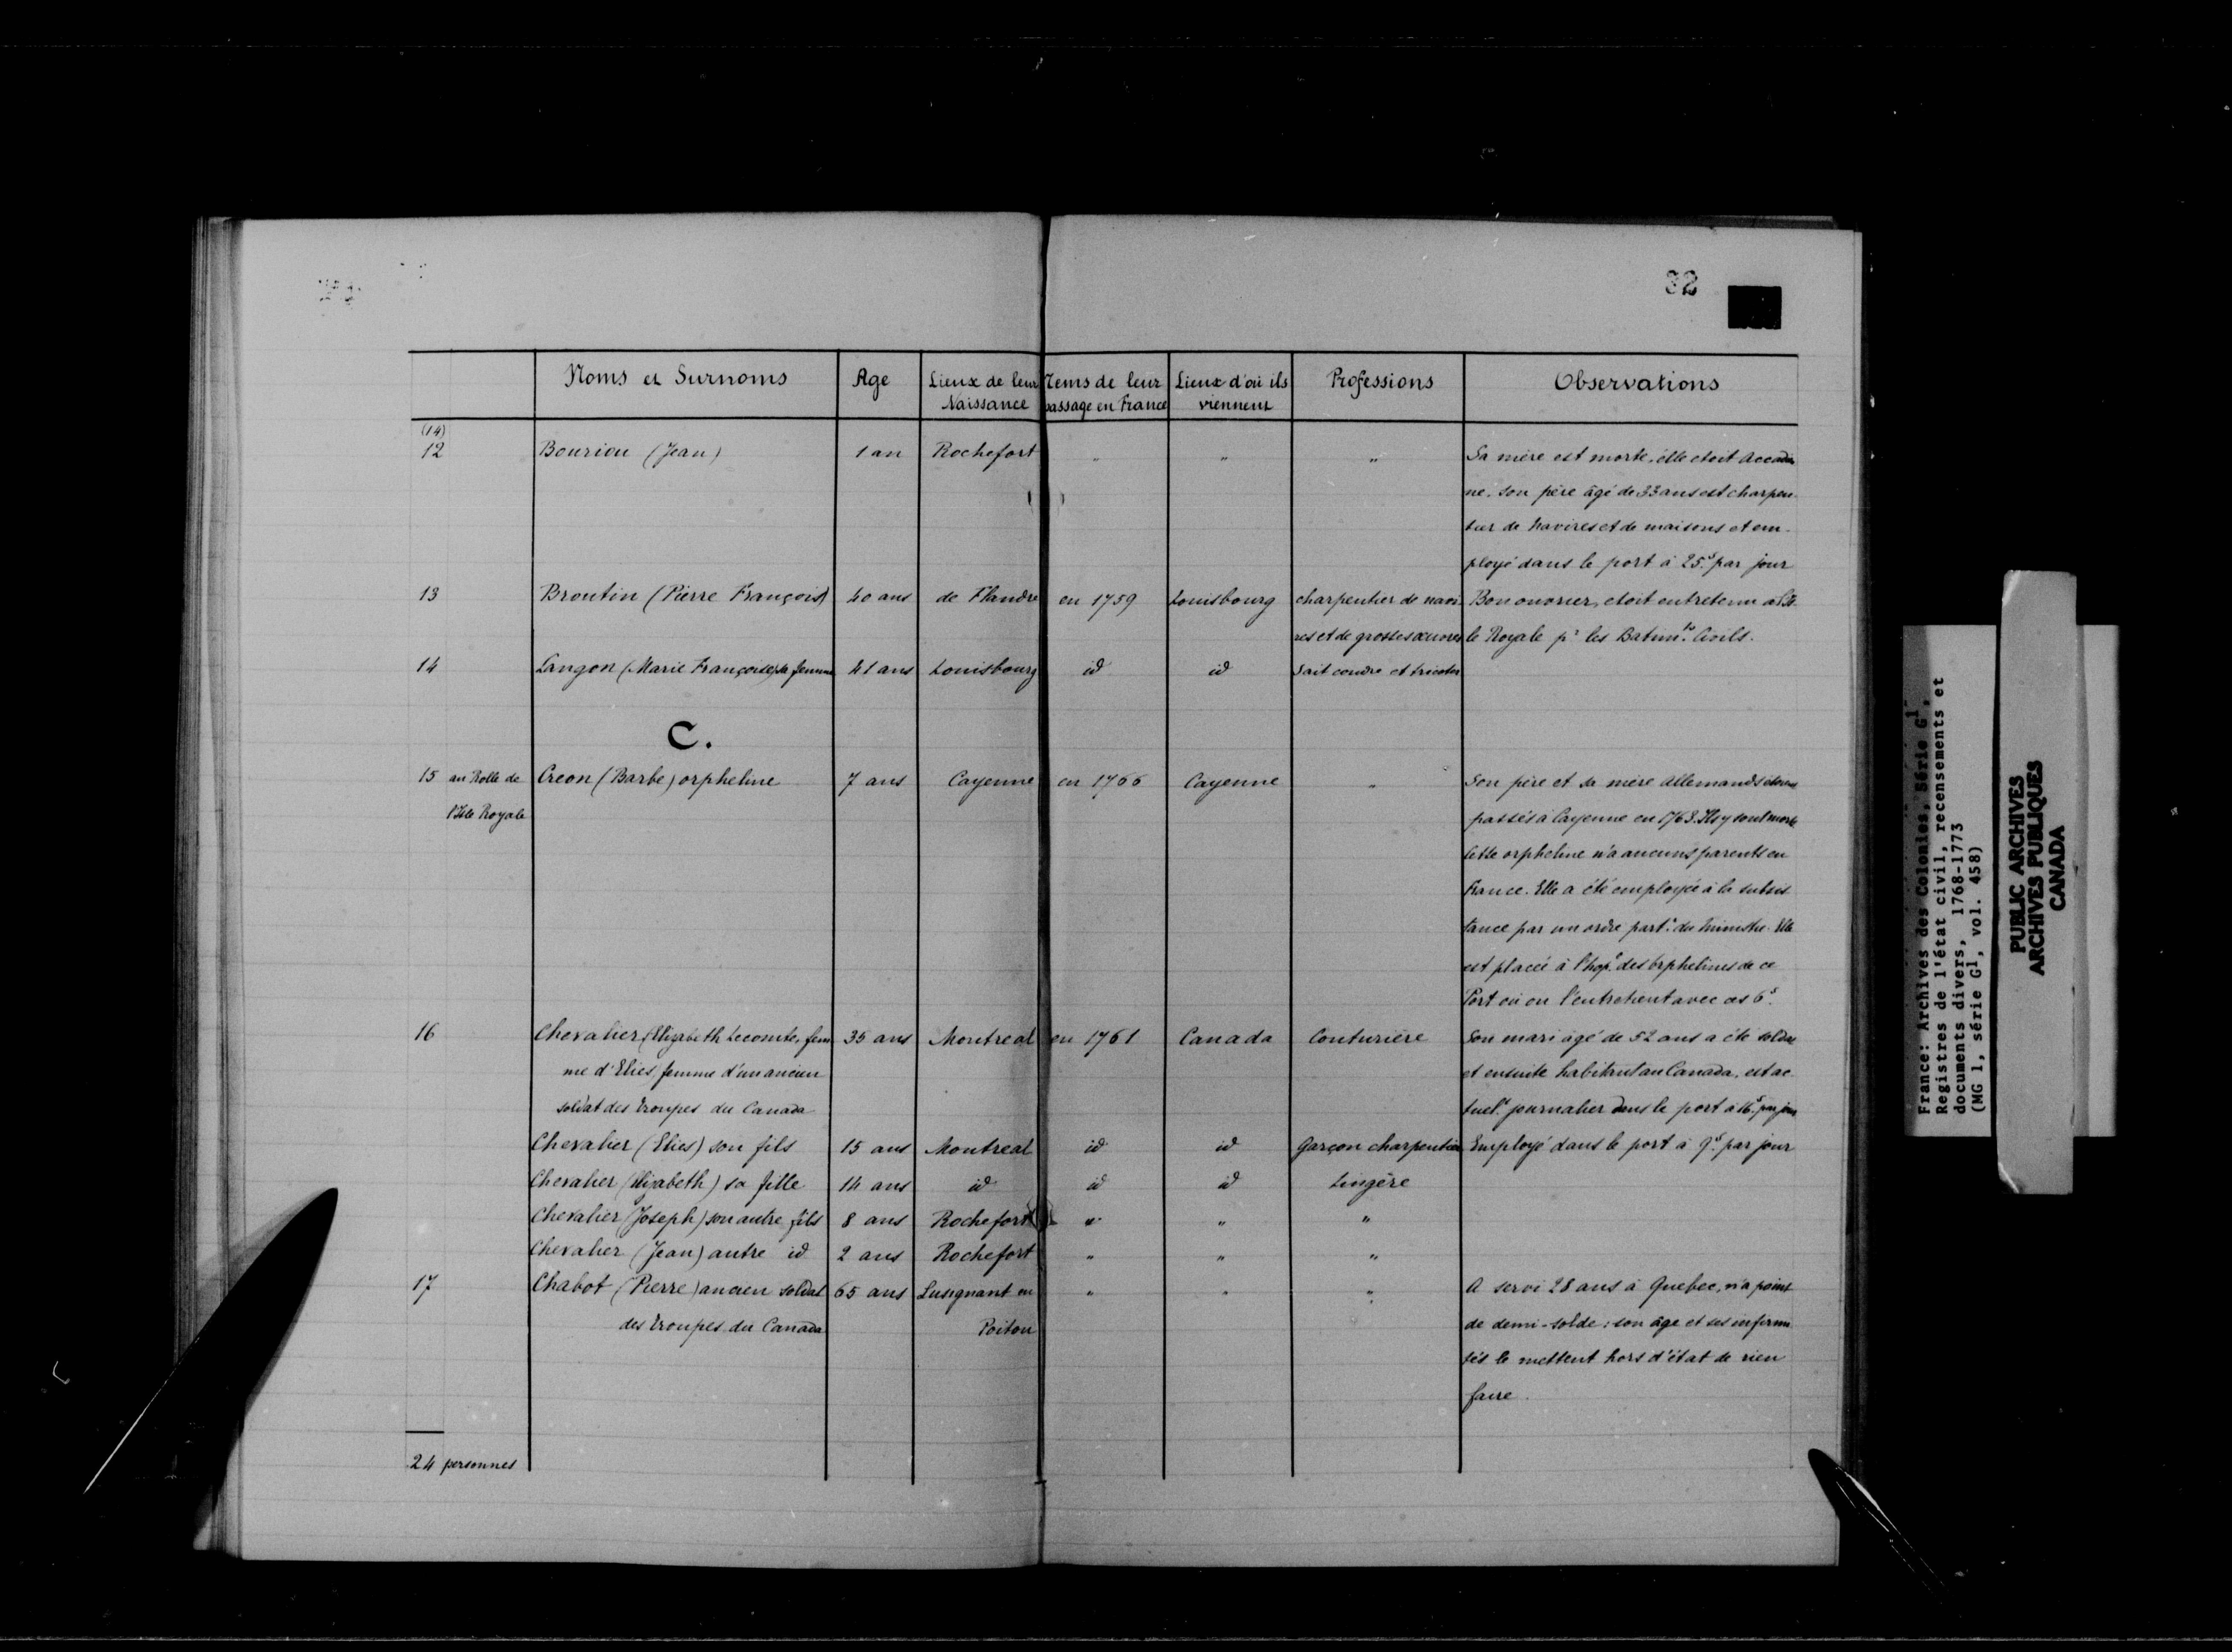 32
Noms et Surnoms | Age | Lieux de leur Naissance | Tems de leur passage en France | Lieux d'où ils viennent | Professions | Observations
(14)
12 | Bouriou (Jean) | 1 an | Rochefort | " | " | " | Sa mère est morte, elle etoit Accadie
ne. son père âgé de 33 ans est charpen
tier de navires et de maisons et em-
ployé dans le port à 25.s par jour
13 | Broutin (Pierre François) | 40 ans | de Flandre | en 1759 | Louisbourg | charpentier de navi | Bon ouvrier, etoit entretenu a l'Is
res et de grosses œuvres | le Royale pr les Batimts Civils.
14 | Langon (Marie Françoise) sa femme | 41 ans | Louisbourg | id | id | Sait coudre et tricoter
C.
15 au Rolle de | Creon (Barbe) orpheline | 7 ans | Cayenne | en 1766 | Cayenne | " | Son père et sa mère Allemands étoient
l'Isle Royale | passés à Cayenne en 1763. Ils y sont morts
Cette orpheline n'a aucuns parents en
France. Elle a été employée à la subsis
tance par un ordre part.r du Ministre. Elle
est placée à l'hop.l des Orphelines de ce
Port où on l'entretient avec ces 6.s
16 | Chevalier (Elizabeth Lecomte, fem | 35 ans | Montreal | en 1761 | Canada | Couturière | Son mari âgé de 52 ans a été soldat
me d'Elies, femme d'un ancien | et ensuite habitant au Canada, est ac
soldat des troupes du Canada | tuel.t journalier dans le port à 16.s par jour
Chevalier (Elies) son fils | 15 ans | Montreal | id | id | garçon charpentier | Employé dans le port à 9.s par jour
Chevalier (Elizabeth) sa fille | 14 ans | id | id | id | Lingère
Chevalier (Joseph) son autre fils | 8 ans | Rochefort | " | " | "
Chevalier (Jean) autre id | 2 ans | Rochefort | " | " | "
17 | Chabot (Pierre) ancien soldat | 65 ans | Lusignant en | " | " | " | A servi 28 ans à Quebec, n'a point
des troupes du Canada | Poitou | de demi-solde: son âge et ses infirmi
tés le mettent hors d'état de rien
faire.
24 personnes
France: Archives des Colonies, Série G1,
Registres de l'état civil, recensements et
documents divers, 1768-1773
(MG 1, série G1, vol. 458)
PUBLIC ARCHIVES
ARCHIVES PUBLIQUES
CANADA